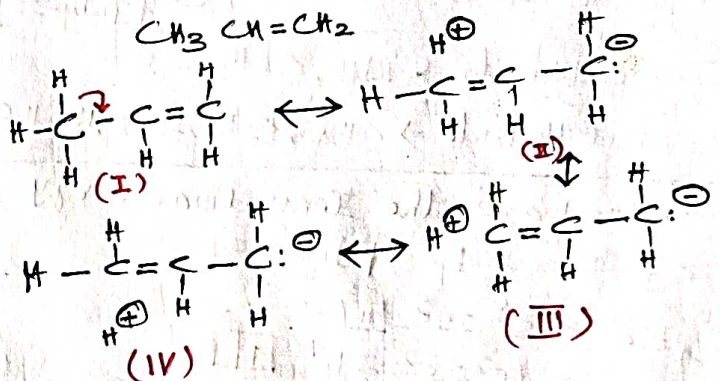 CH₃ CH=CH₂
H H
H–C–C=C
H H H
(I)
↔
H⊕ H ⊖
H–C=C–C:
H H H
(II)
↕
H H ⊖
H⊕ C=C–C:
H H H
(III)
↔
H H
H–C=C–C: ⊖
H⊕ H H
(IV)